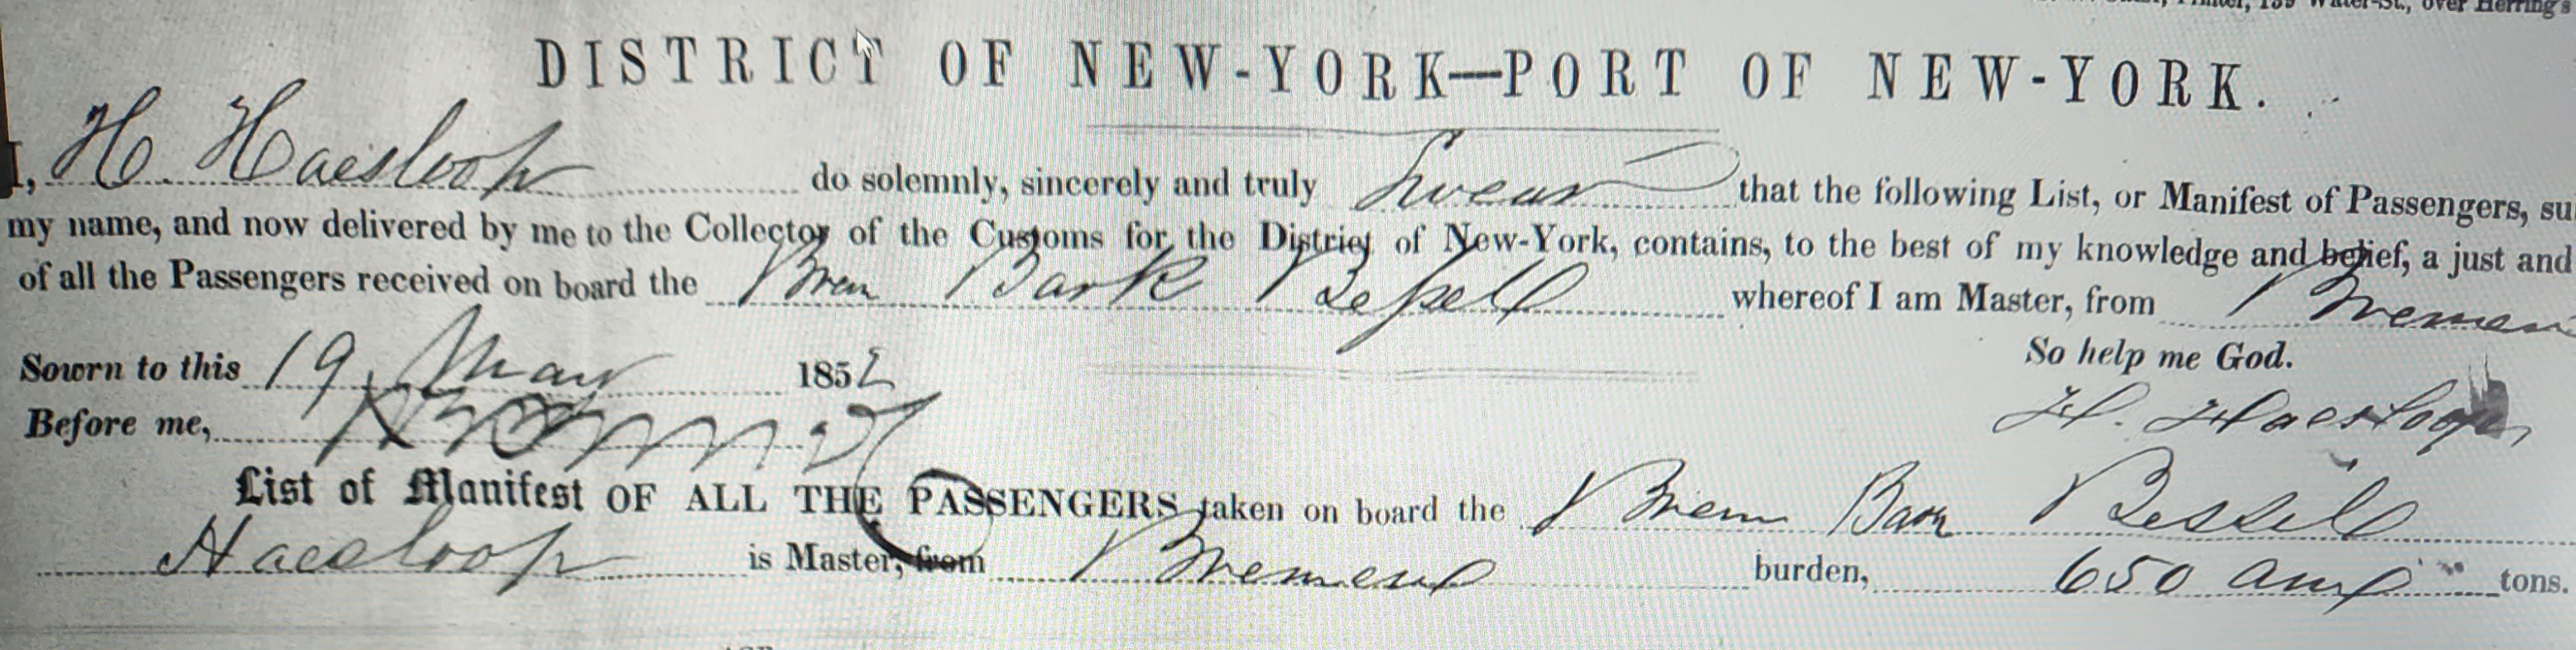 Printer, 139 Water-St., over Herring's
DISTRICT OF NEW-YORK—PORT OF NEW-YORK.
I, H. Haesloop do solemnly, sincerely and truly Swear that the following List, or Manifest of Passengers, su
my name, and now delivered by me to the Collector of the Customs for the District of New-York, contains, to the best of my knowledge and belief, a just and
of all the Passengers received on board the Brem Bark Bessell whereof I am Master, from Bremen
So help me God.
Sowrn to this 19 May 1852
H. Haesloop
Before me,
List of Manifest OF ALL THE PASSENGERS taken on board the Brem Bark Bessell
Haesloop is Master, from Bremen burden, 650 tons.